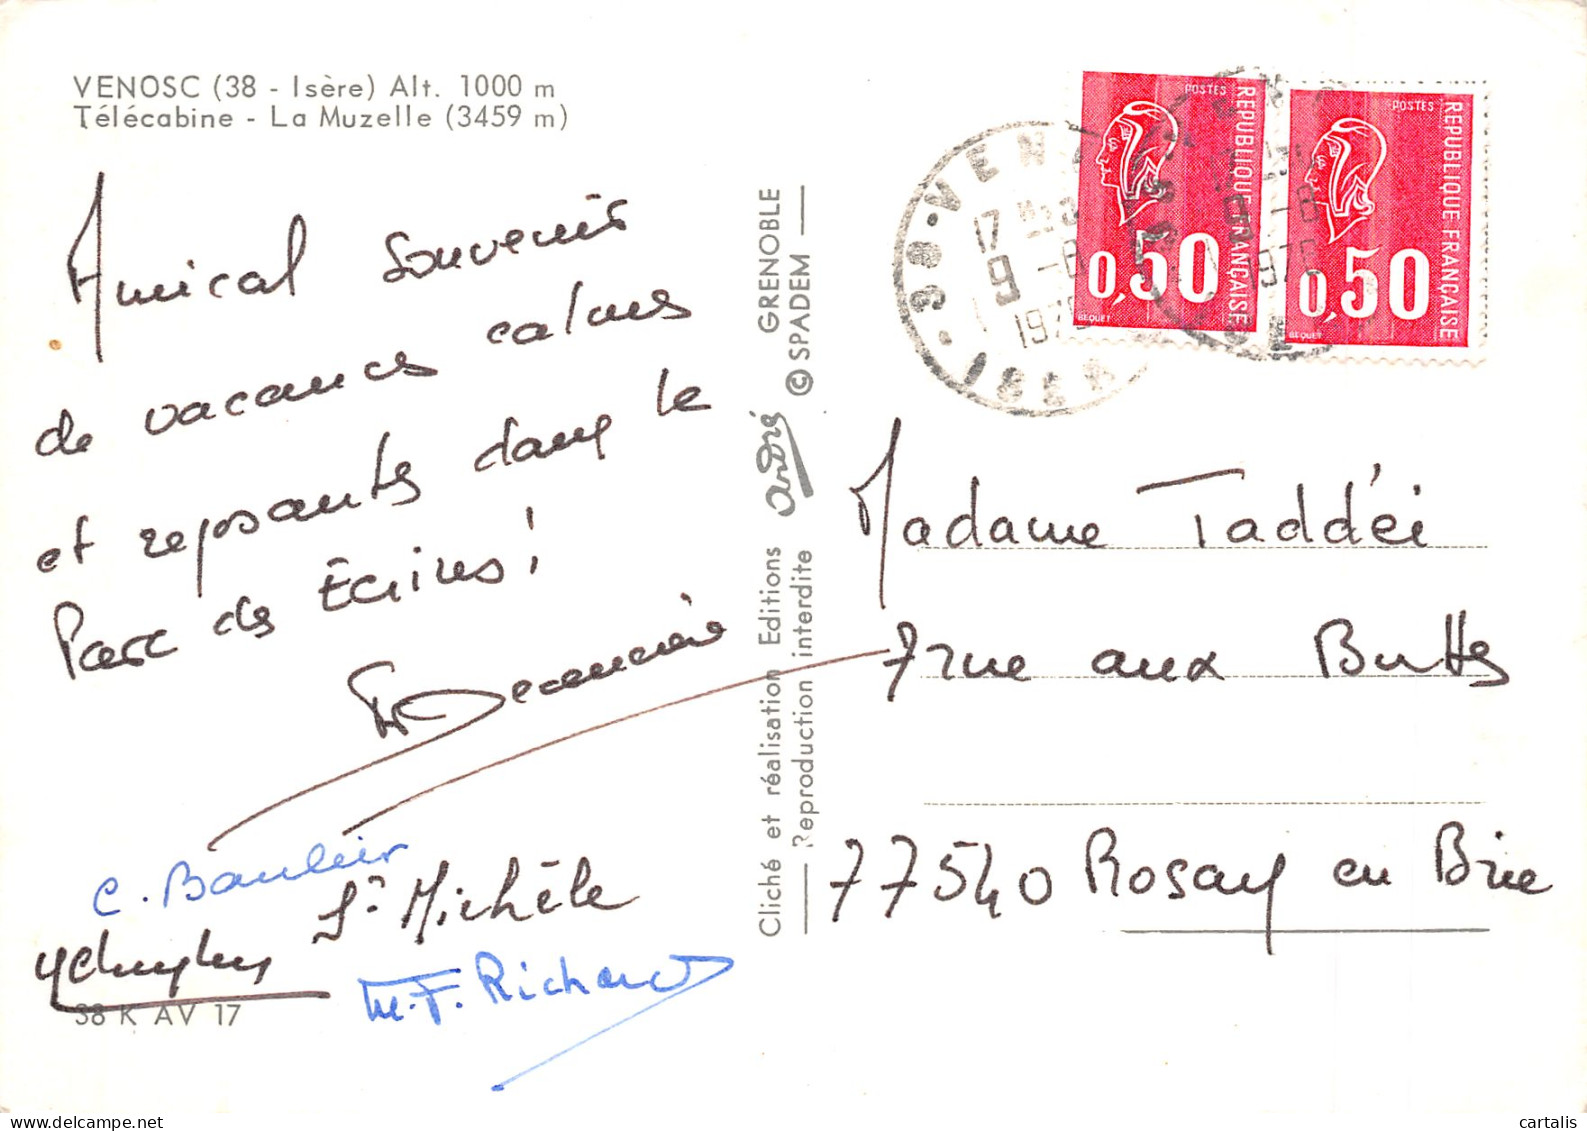 VENOSC (38 - Isère) Alt. 1000 m
Télécabine - La Muzelle (3459 m)
Amical Souvenir
de vacances calmes
et reposantes dans le
Parc des Écrins!
C. Baulier
Sr Michèle
M.F. Richard
38 K AV 17
Cliché et réalisation Editions André GRENOBLE
Reproduction interdite © SPADEM
38 · VEN
17
9 - 8
197
ISÈRE
POSTES
REPUBLIQUE FRANÇAISE
0,50
BEQUET
POSTES
REPUBLIQUE FRANÇAISE
0,50
BEQUET
Madame Taddéi
7 rue aux Buttes
77540 Rosay en Brie
cartalis